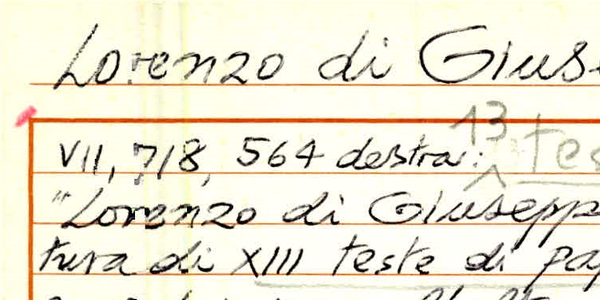 Lorenzo di Gius
13 tes
VII, 7/8, 564 destra:
"Lorenzo di Giusepp
tura di XIII teste di pa